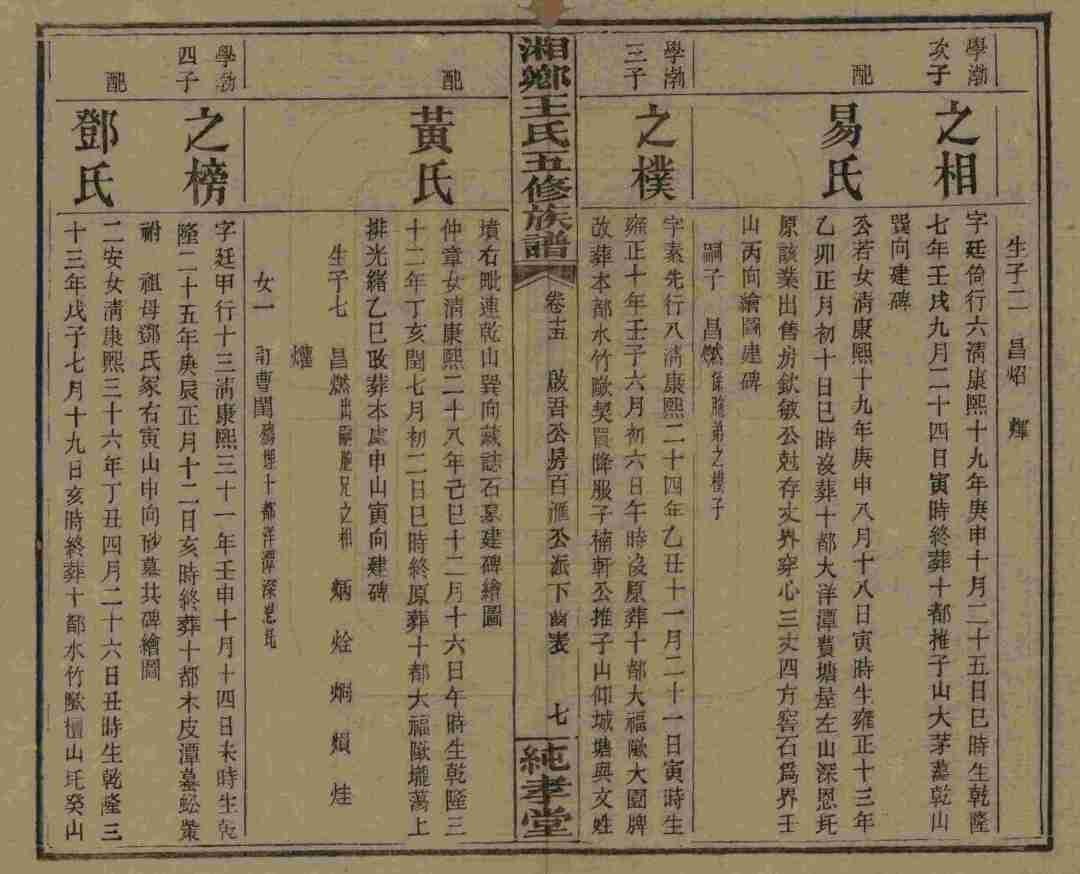 生子二 昌炤 輝
學渤
次子
之相
字廷倚行六清康熙十九年庚申十月二十五日巳時生乾隆
七年壬戌九月二十四日寅時終葬十都推子山大茅蓋乾山
巽向建碑
配
易氏
公若女清康熙十九年庚申八月十八日寅時生雍正十三年
乙卯正月初十日巳時沒葬十都大洋潭費塘屋左山深恩圫
原該業出售房欽敏公尅存丈界穿心三丈四方窖石爲界壬
山丙向繪圖建碑
嗣子 昌燃係胞弟之樸子
學渤
三子
之樸
字素先行八清康熙二十四年乙丑十一月二十一日寅時生
雍正十年壬子六月初六日午時沒原葬十都大福歐大園牌
改葬本都水竹歐契買降服子楠軒公推子山仰城塘與文姓
湘鄉王氏五修族譜
卷十五 啟吾公房百滙公派下齒表 七
純孝堂
墳右毗連乾山巽向藏誌石墓建碑繪圖
配
黃氏
仲章女清康熙二十八年己巳十二月十六日午時生乾隆三
十二年丁亥閏七月初二日巳時終原葬十都大福歐壠蕩上
排光緒乙巳改葬本處申山寅向建碑
生子七 昌燃出嗣胞兄之相 炳 烇 烱 熉 烓
爟
女一 訂曹閨殤埋十都洋潭深恩圫
學渤
四子
之榜
字廷甲行十三清康熙三十一年壬申十月十四日未時生乾
隆二十五年庚辰正月十二日亥時終葬十都木皮潭蟇蚣嶪
祔 祖母鄧氏冢右寅山申向砂墓共碑繪圖
配
鄧氏
二安女清康熙三十六年丁丑四月二十六日丑時生乾隆三
十三年戊子七月十九日亥時終葬十都水竹歐檀山圫癸山